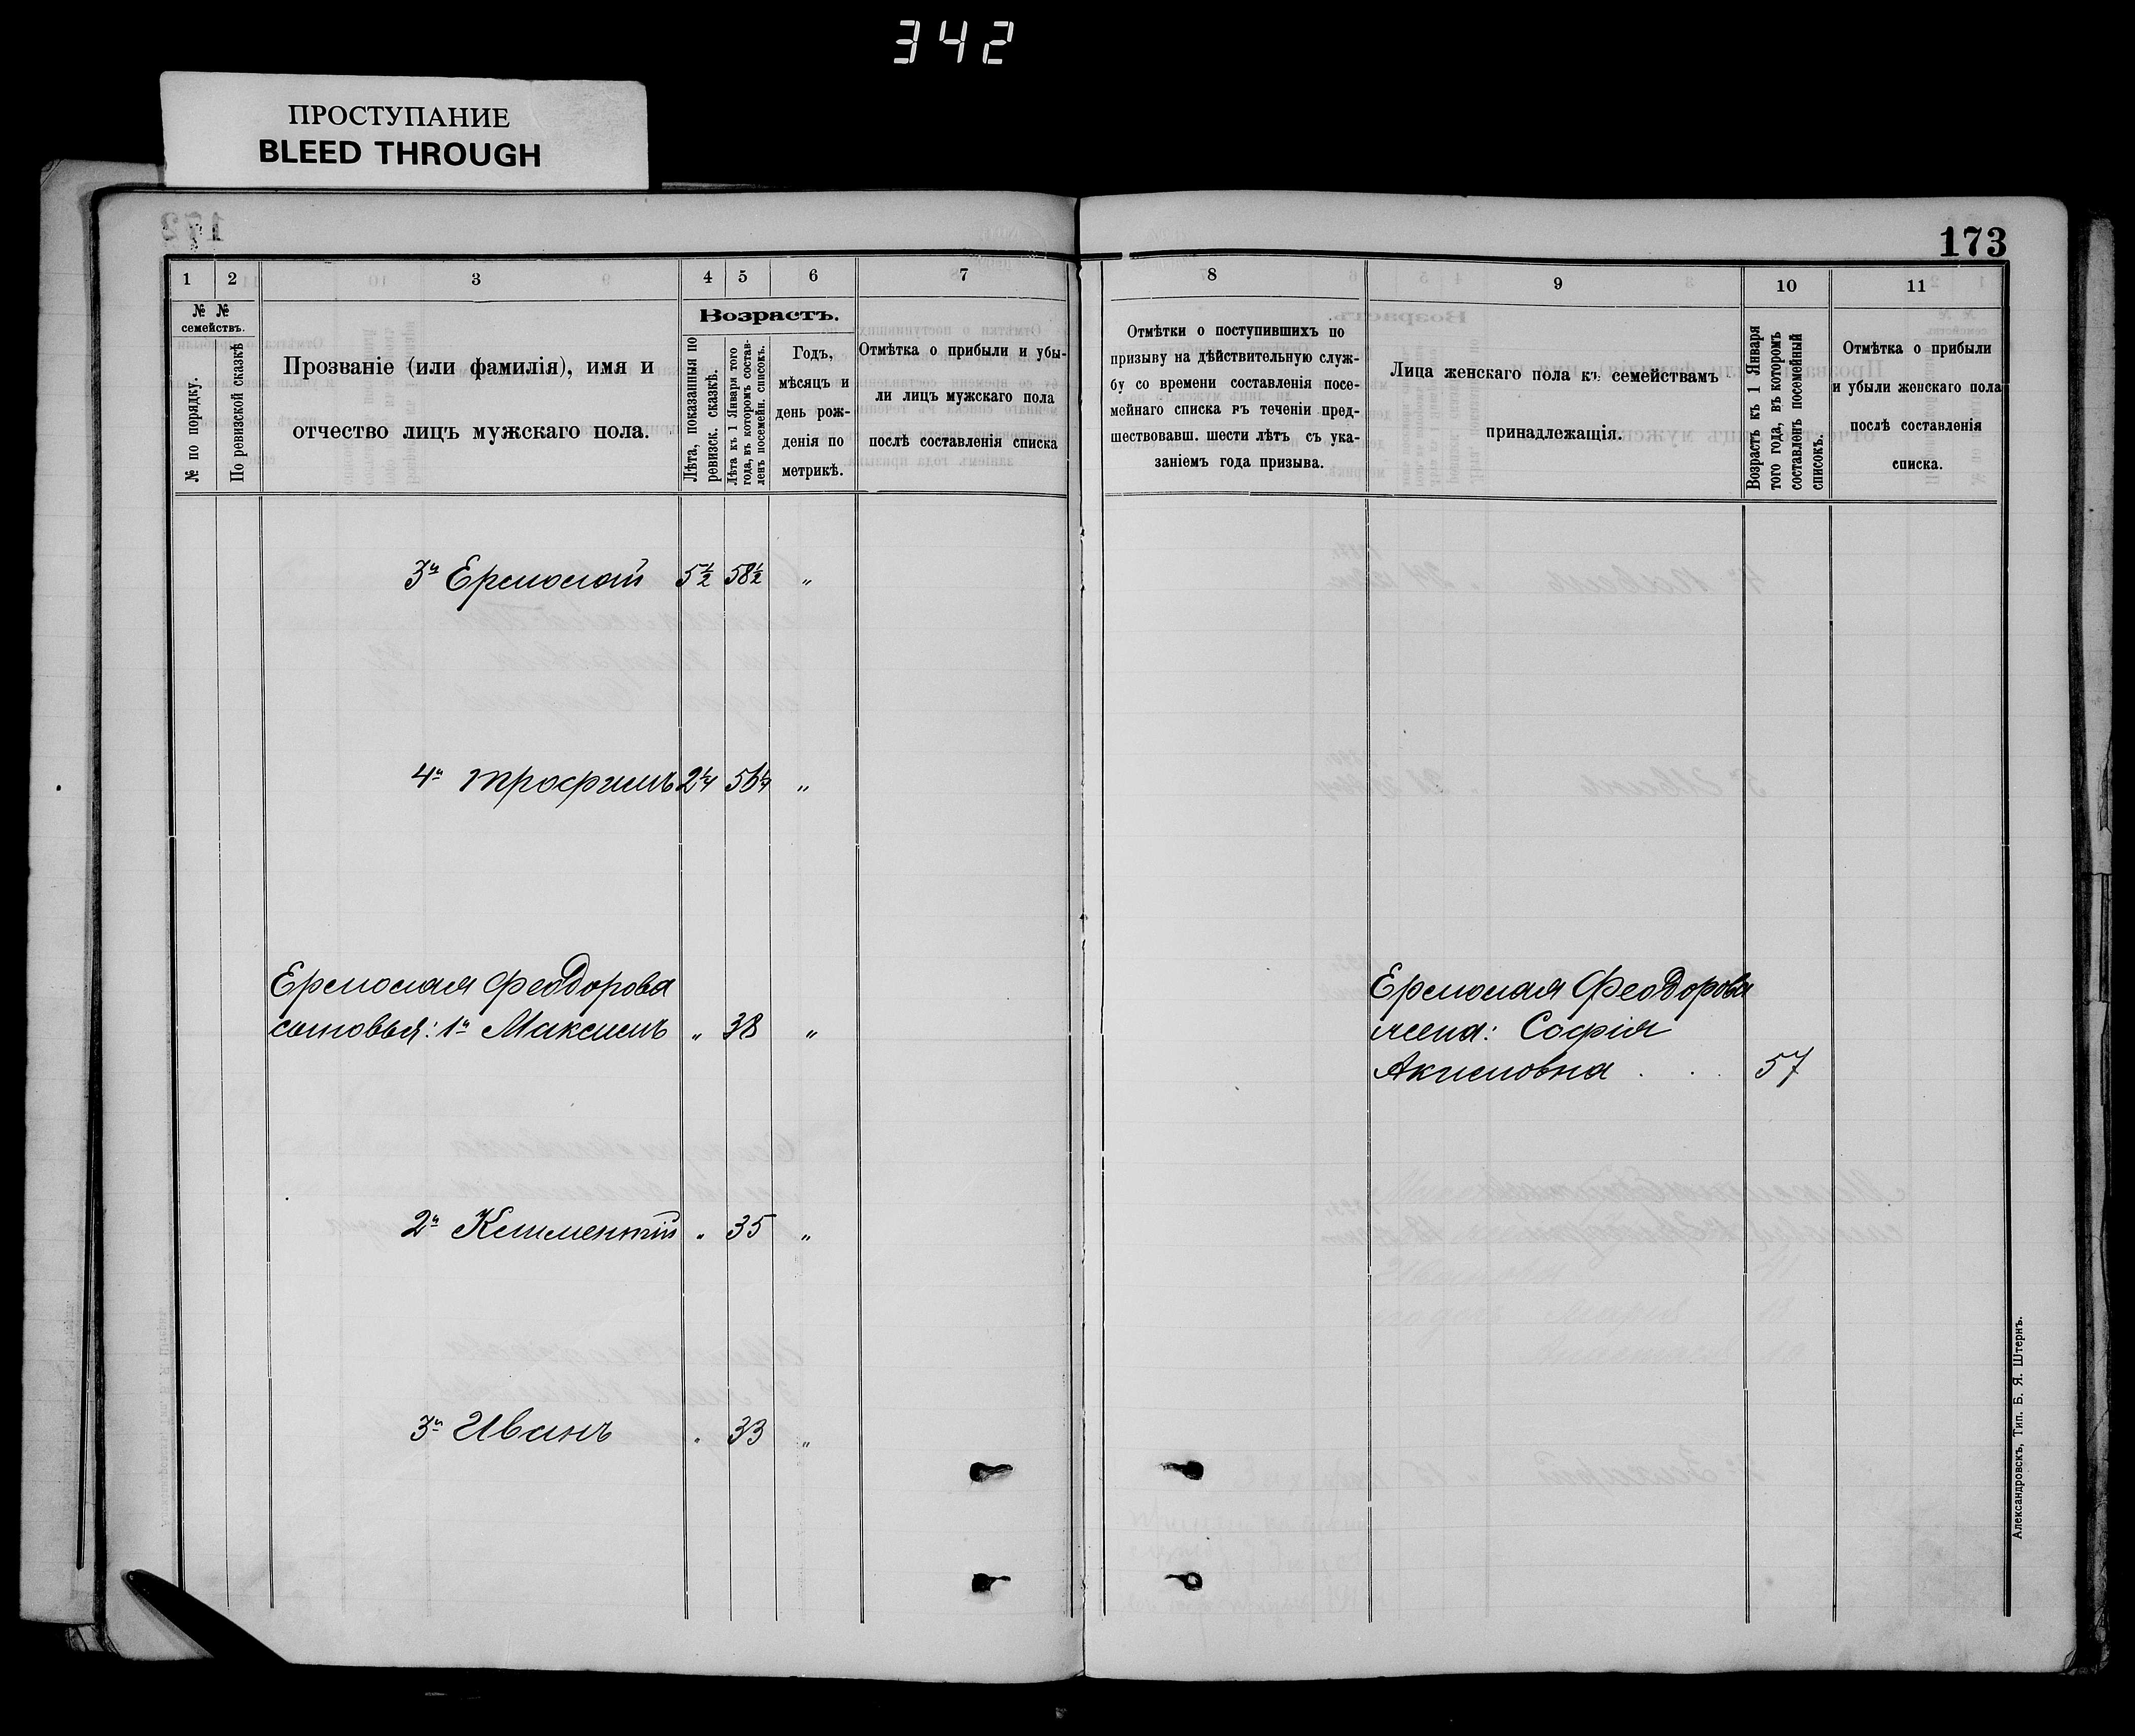 342
ПРОСТУПАНИЕ
BLEED THROUGH
173
1 2 3 4 5 6 7 8 9 10 11
№ № семействъ.
№ по порядку.
По ревизской сказкѣ
Прозваніе (или фамилія), имя и
отчество лицъ мужскаго пола.
Возрастъ.
Лѣта, показанныя по
ревизск. сказкѣ.
Лѣта къ 1 Января того
года, въ которомъ состав-
ленъ посемейн. списокъ.
Годъ,
мѣсяцъ и
день рож-
денія по
метрикѣ.
Отмѣтка о прибыли и убы-
ли лицъ мужскаго пола
послѣ составленія списка
Отмѣтки о поступившихъ по
призыву на дѣйствительную служ-
бу со времени составленія посе-
мейнаго списка въ теченіи пред-
шествовавш. шести лѣтъ съ ука-
заніемъ года призыва.
Лица женскаго пола къ семействамъ
принадлежащія.
Возрастъ къ 1 Января
того года, въ которомъ
составленъ посемейный
списокъ.
Отмѣтка о прибыли
и убыли женскаго пола
послѣ составленія
списка.
3й Ермолай 5½ 58½ „
4й Трофимъ 2¼ 56¼ „
Ермолая Феодорова
сыновья: 1й Максимъ „ 38 „
Ермолая Феодорова
жена: Софія
Акимовна . . . 57
2й Климентій „ 35 „
3й Иванъ „ 33 „
Александровскъ, Тип. Б. Я. Штернъ.